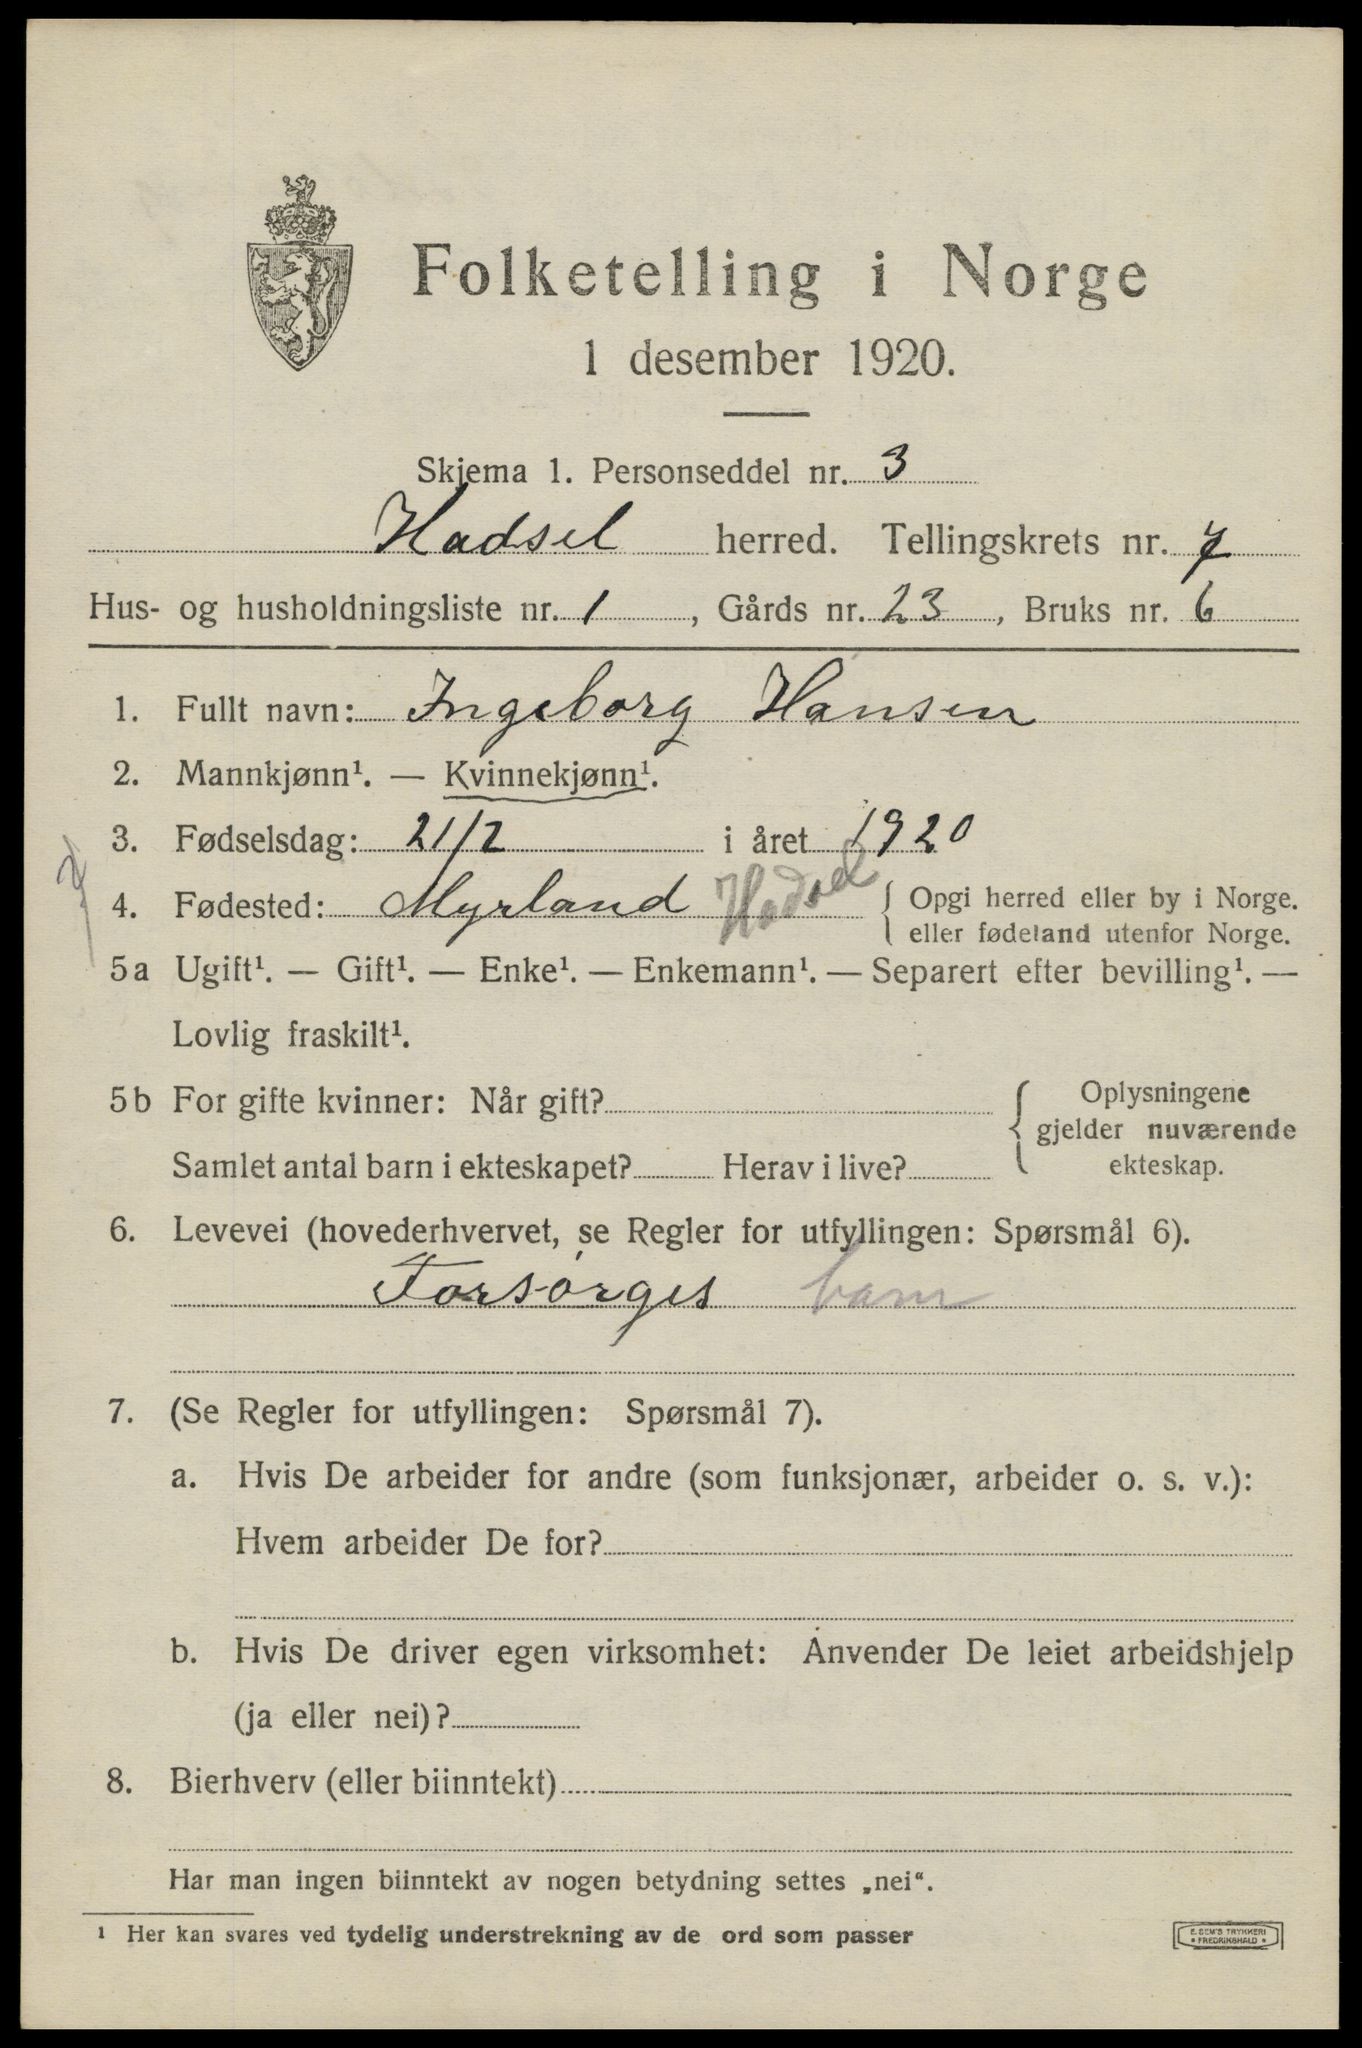 Folketelling i Norge
1 desember 1920.
Skjema 1. Personseddel nr. 3
Hadsel herred. Tellingskrets nr. 7
Hus- og husholdningsliste nr. 1, Gårds nr. 23, Bruks nr. 6
1. Fullt navn: Ingeborg Hansen
2. Mannkjønn¹. — Kvinnekjønn¹.
3. Fødselsdag: 21/2 i året 1920
4. Fødested: Myrland Hadsel { Opgi herred eller by i Norge.
eller fødeland utenfor Norge.
5a Ugift¹. — Gift¹. — Enke¹. — Enkemann¹. — Separert efter bevilling¹. —
Lovlig fraskilt¹.
5b For gifte kvinner: Når gift?
Samlet antal barn i ekteskapet? Herav i live?
{ Oplysningene
gjelder nuværende
ekteskap.
6. Levevei (hovederhvervet, se Regler for utfyllingen: Spørsmål 6).
Forsørges barn
7. (Se Regler for utfyllingen: Spørsmål 7).
a. Hvis De arbeider for andre (som funksjonær, arbeider o. s. v.):
Hvem arbeider De for?
b. Hvis De driver egen virksomhet: Anvender De leiet arbeidshjelp
(ja eller nei)?
8. Bierhverv (eller biinntekt)
Har man ingen biinntekt av nogen betydning settes „nei“.
¹ Her kan svares ved tydelig understrekning av de ord som passer
E. SEM'S TRYKKERI
* FREDRIKSHALD *